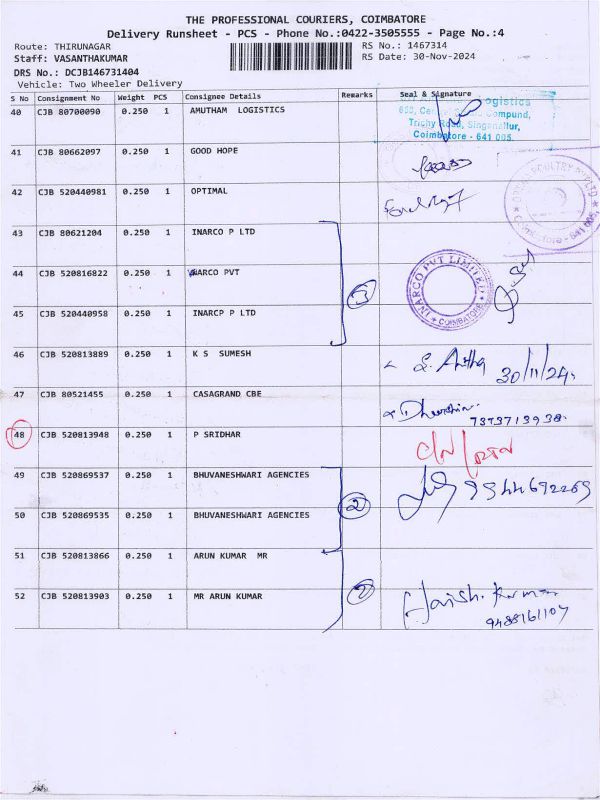 THE PROFESSIONAL COURIERS, COIMBATORE
Delivery Runsheet - PCS - Phone No.:0422-3505555 - Page No.:4
Route: THIRUNAGAR RS No.: 1467314
Staff: VASANTHAKUMAR RS Date: 30-Nov-2024
DRS No.: DCJB146731404
Vehicle: Two Wheeler Delivery
S No Consignment No Weight PCS Consignee Details Remarks Seal & Signature
40 CJB 80700090 0.250 1 AMUTHAM LOGISTICS
Logistics
Compund,
Trichy Road, Singanallur,
Coimbatore - 641 005.
41 CJB 80662097 0.250 1 GOOD HOPE
42 CJB 520440981 0.250 1 OPTIMAL
POULTRY PVT LTD
Coimbatore - 641 005
43 CJB 80621204 0.250 1 INARCO P LTD
44 CJB 520816822 0.250 1 NARCO PVT 3
INARCO PVT LIMITED
COIMBATORE
45 CJB 520440958 0.250 1 INARCP P LTD
46 CJB 520813889 0.250 1 K S SUMESH S. Anitha 30/11/24.
47 CJB 80521455 0.250 1 CASAGRAND CBE
7373713938.
48 CJB 520813948 0.250 1 P SRIDHAR
49 CJB 520869537 0.250 1 BHUVANESHWARI AGENCIES 2 9944692269
50 CJB 520869535 0.250 1 BHUVANESHWARI AGENCIES
51 CJB 520813866 0.250 1 ARUN KUMAR MR
52 CJB 520813903 0.250 1 MR ARUN KUMAR 2 Harish. Kumar
9488161107